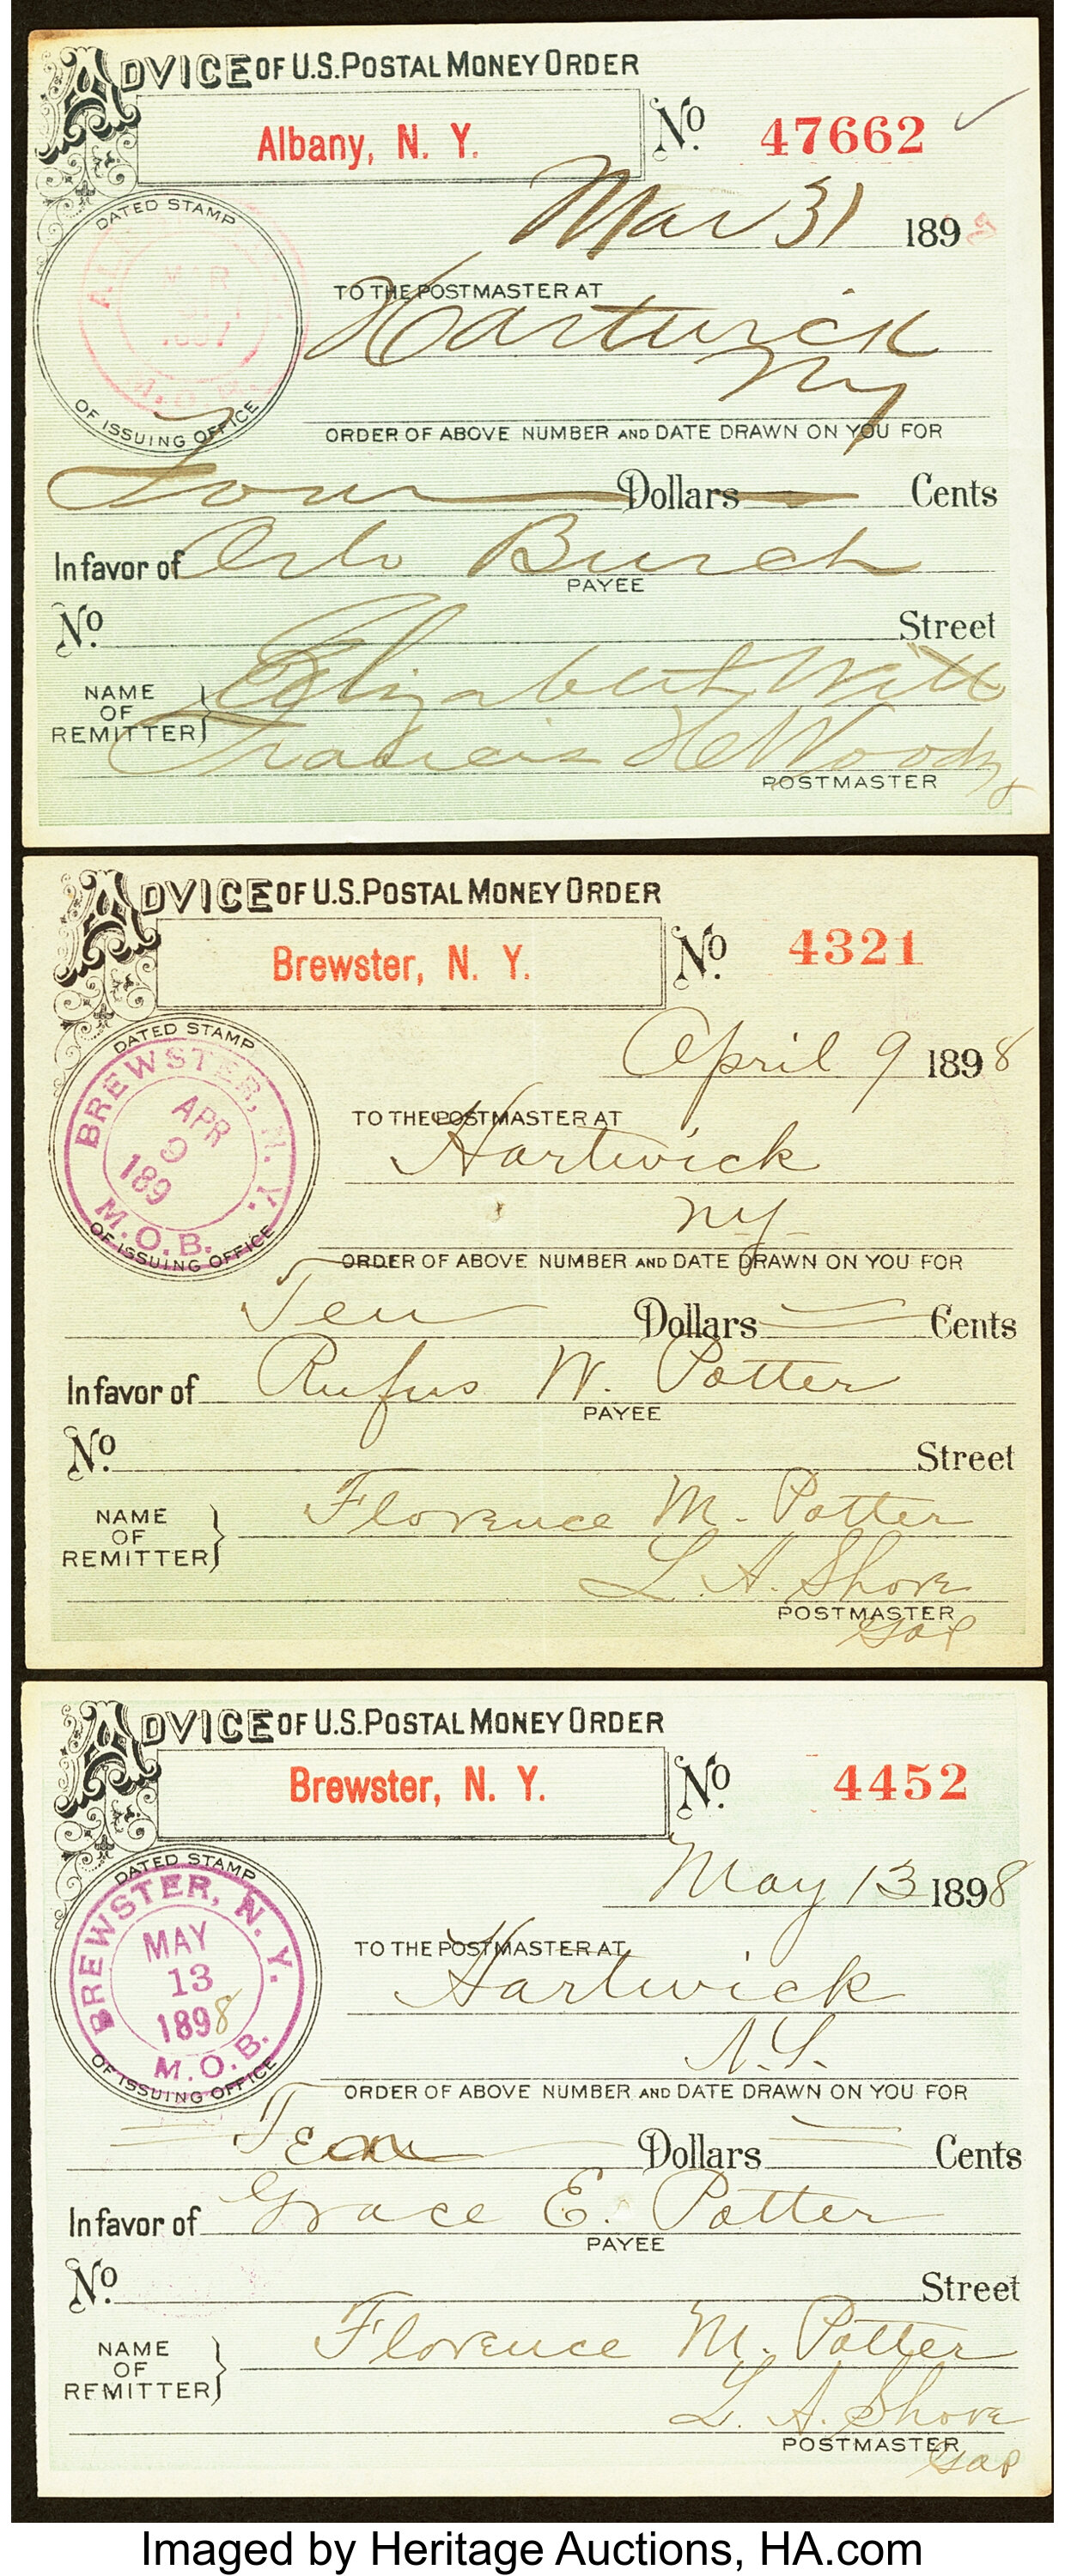 ADVICE OF U.S. POSTAL MONEY ORDER
Albany, N. Y.
No. 47662
Mar 31 189
DATED STAMP
MAR
M.O.B.
OF ISSUING OFFICE
TO THE POSTMASTER AT
Hartwick
NY
ORDER OF ABOVE NUMBER AND DATE DRAWN ON YOU FOR
Four Dollars Cents
In favor of Orlo Burch
PAYEE
No. Street
NAME OF REMITTER} Elizabeth Witt
Francis H Woods
POSTMASTER
ADVICE OF U.S. POSTAL MONEY ORDER
Brewster, N. Y.
No. 4321
April 9 1898
DATED STAMP
BREWSTER, N. Y.
APR
9
189
M.O.B.
OF ISSUING OFFICE
TO THE POSTMASTER AT
Hartwick
NY
ORDER OF ABOVE NUMBER AND DATE DRAWN ON YOU FOR
Ten Dollars Cents
In favor of Rufus W. Potter
PAYEE
No. Street
NAME OF REMITTER} Florence M. Potter
L. A. Shove
POSTMASTER
ADVICE OF U.S. POSTAL MONEY ORDER
Brewster, N. Y.
No. 4452
May 13 1898
DATED STAMP
BREWSTER, N. Y.
MAY
13
1898
M.O.B.
OF ISSUING OFFICE
TO THE POSTMASTER AT
Hartwick
N.Y.
ORDER OF ABOVE NUMBER AND DATE DRAWN ON YOU FOR
Ten Dollars Cents
In favor of Grace E. Potter
PAYEE
No. Street
NAME OF REMITTER} Florence M. Potter
L. A. Shove
POSTMASTER
Imaged by Heritage Auctions, HA.com